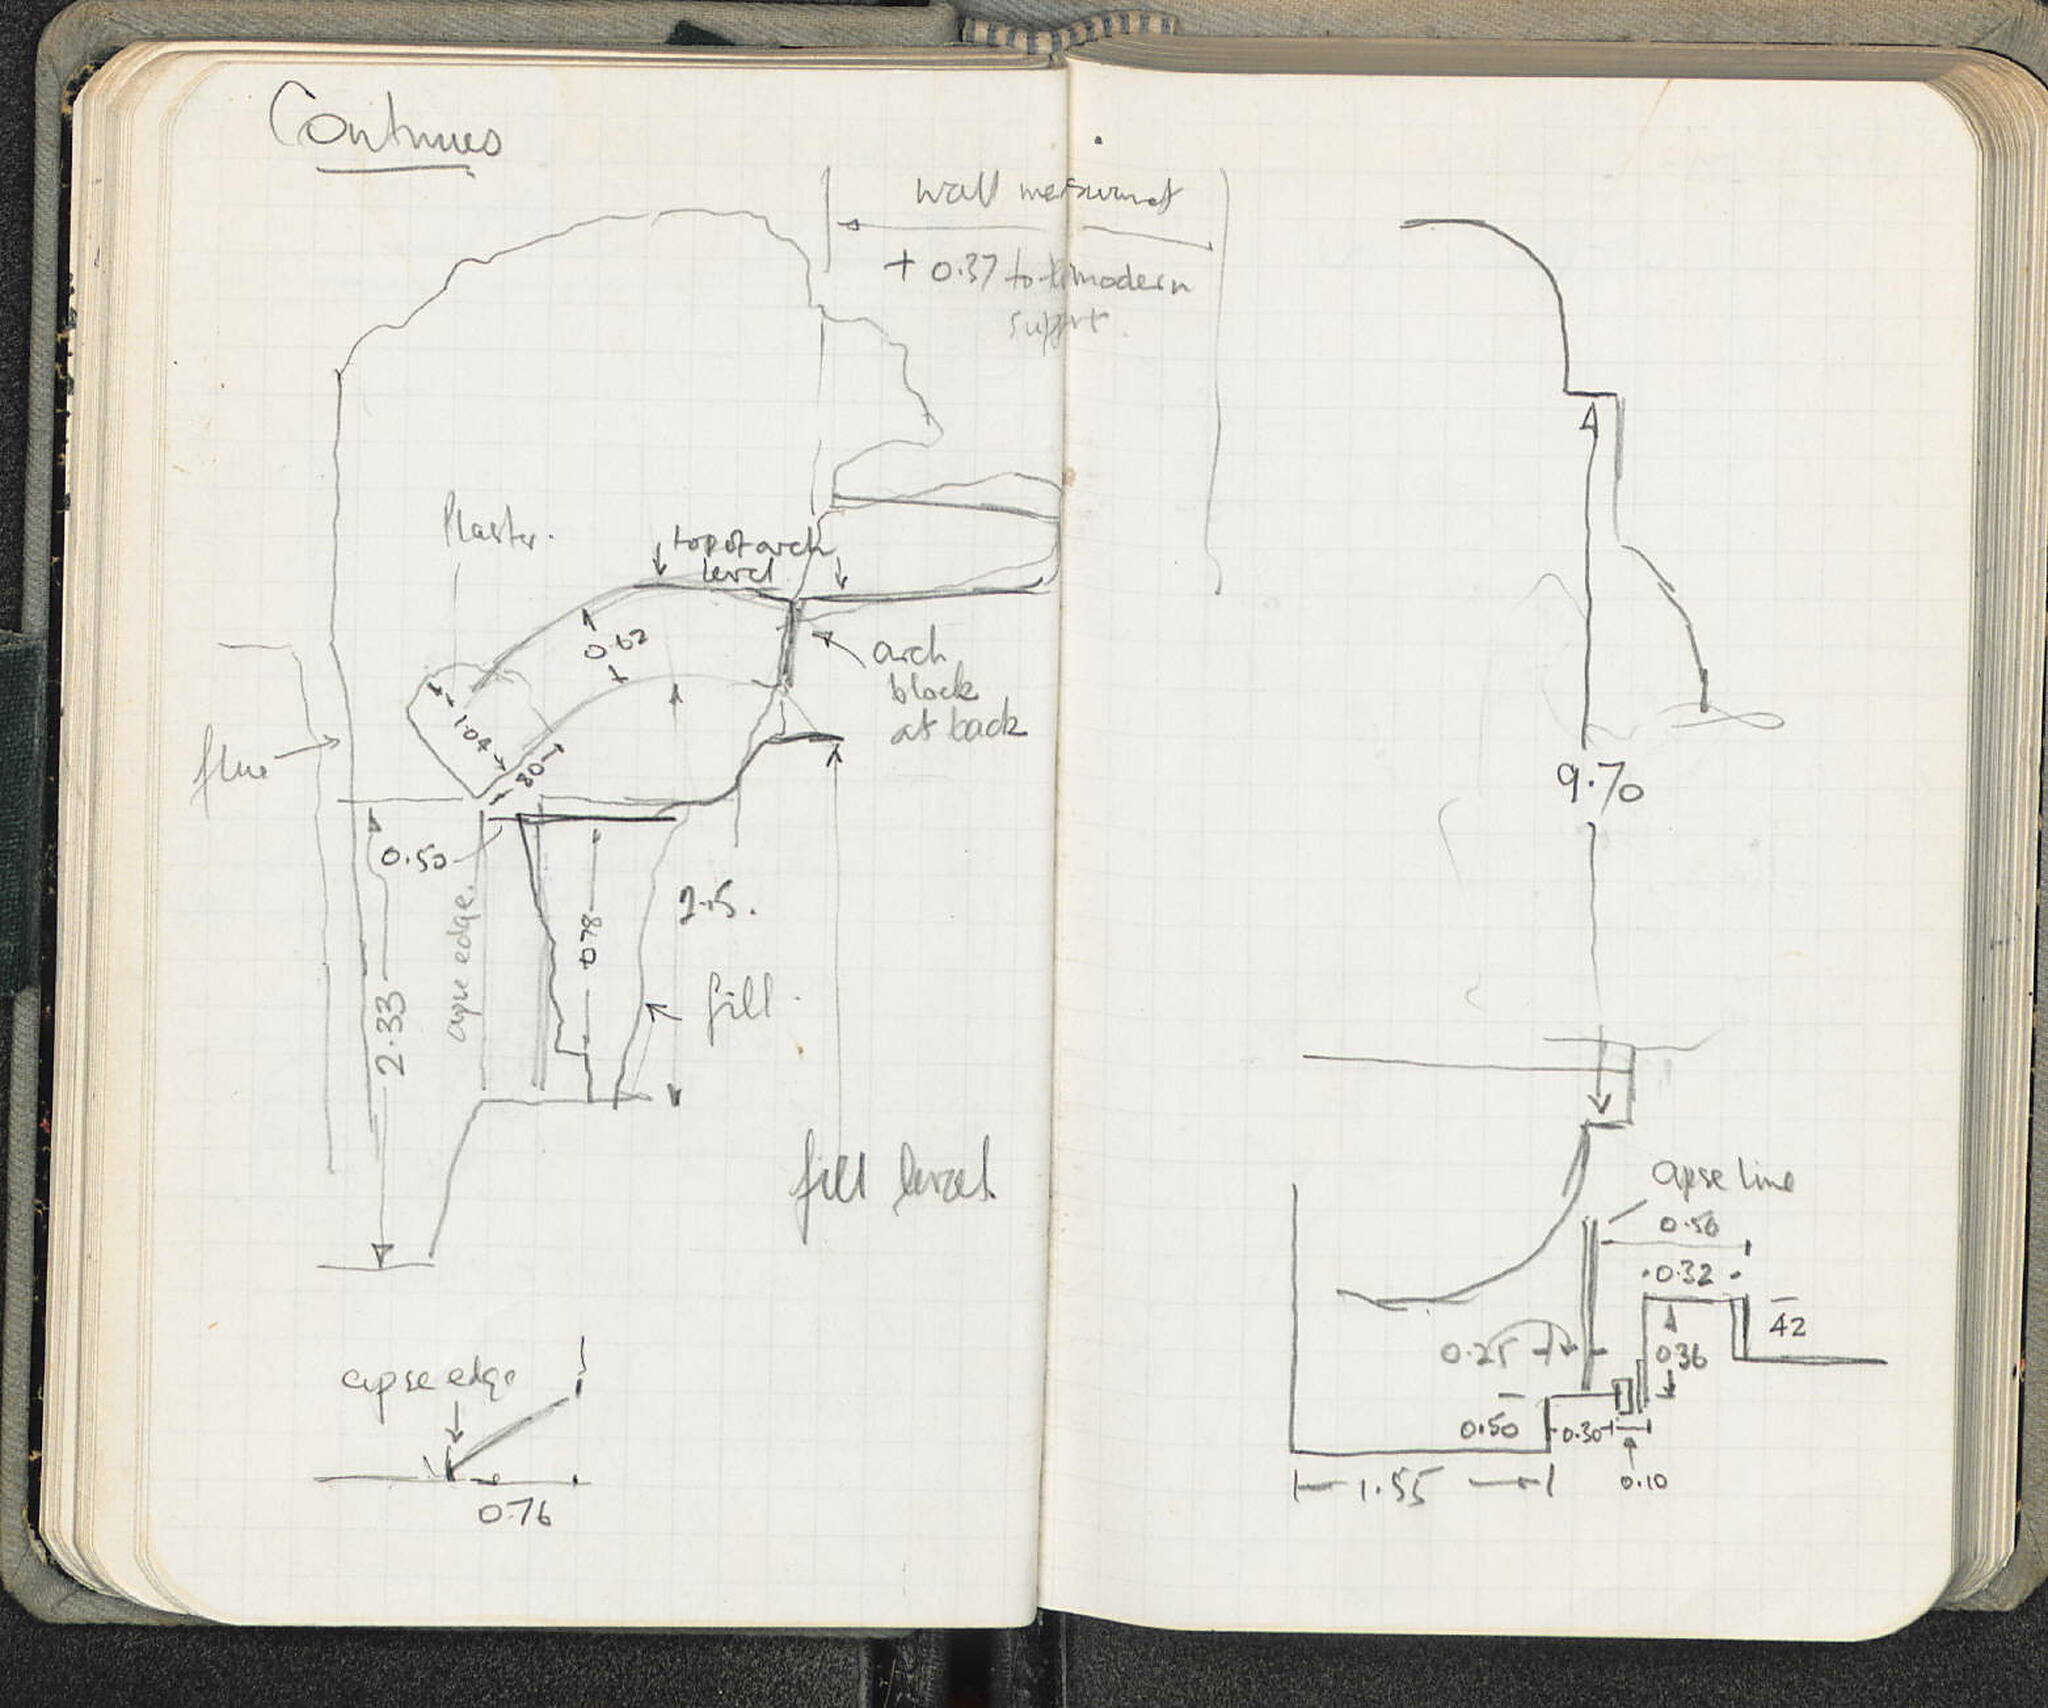 Continues
wall measurement
+ 0.37 to modern
support.
Plaster.
top of arch
level
0.62
arch
block
at back
1.04
.80
flue
0.50
apse edge.
0.78
2.15.
2.33
fill
fill level
apse edge
0.76
9.70
apse line
0.56
0.32
42
0.25
0.36
0.50
0.30
0.10
1.55